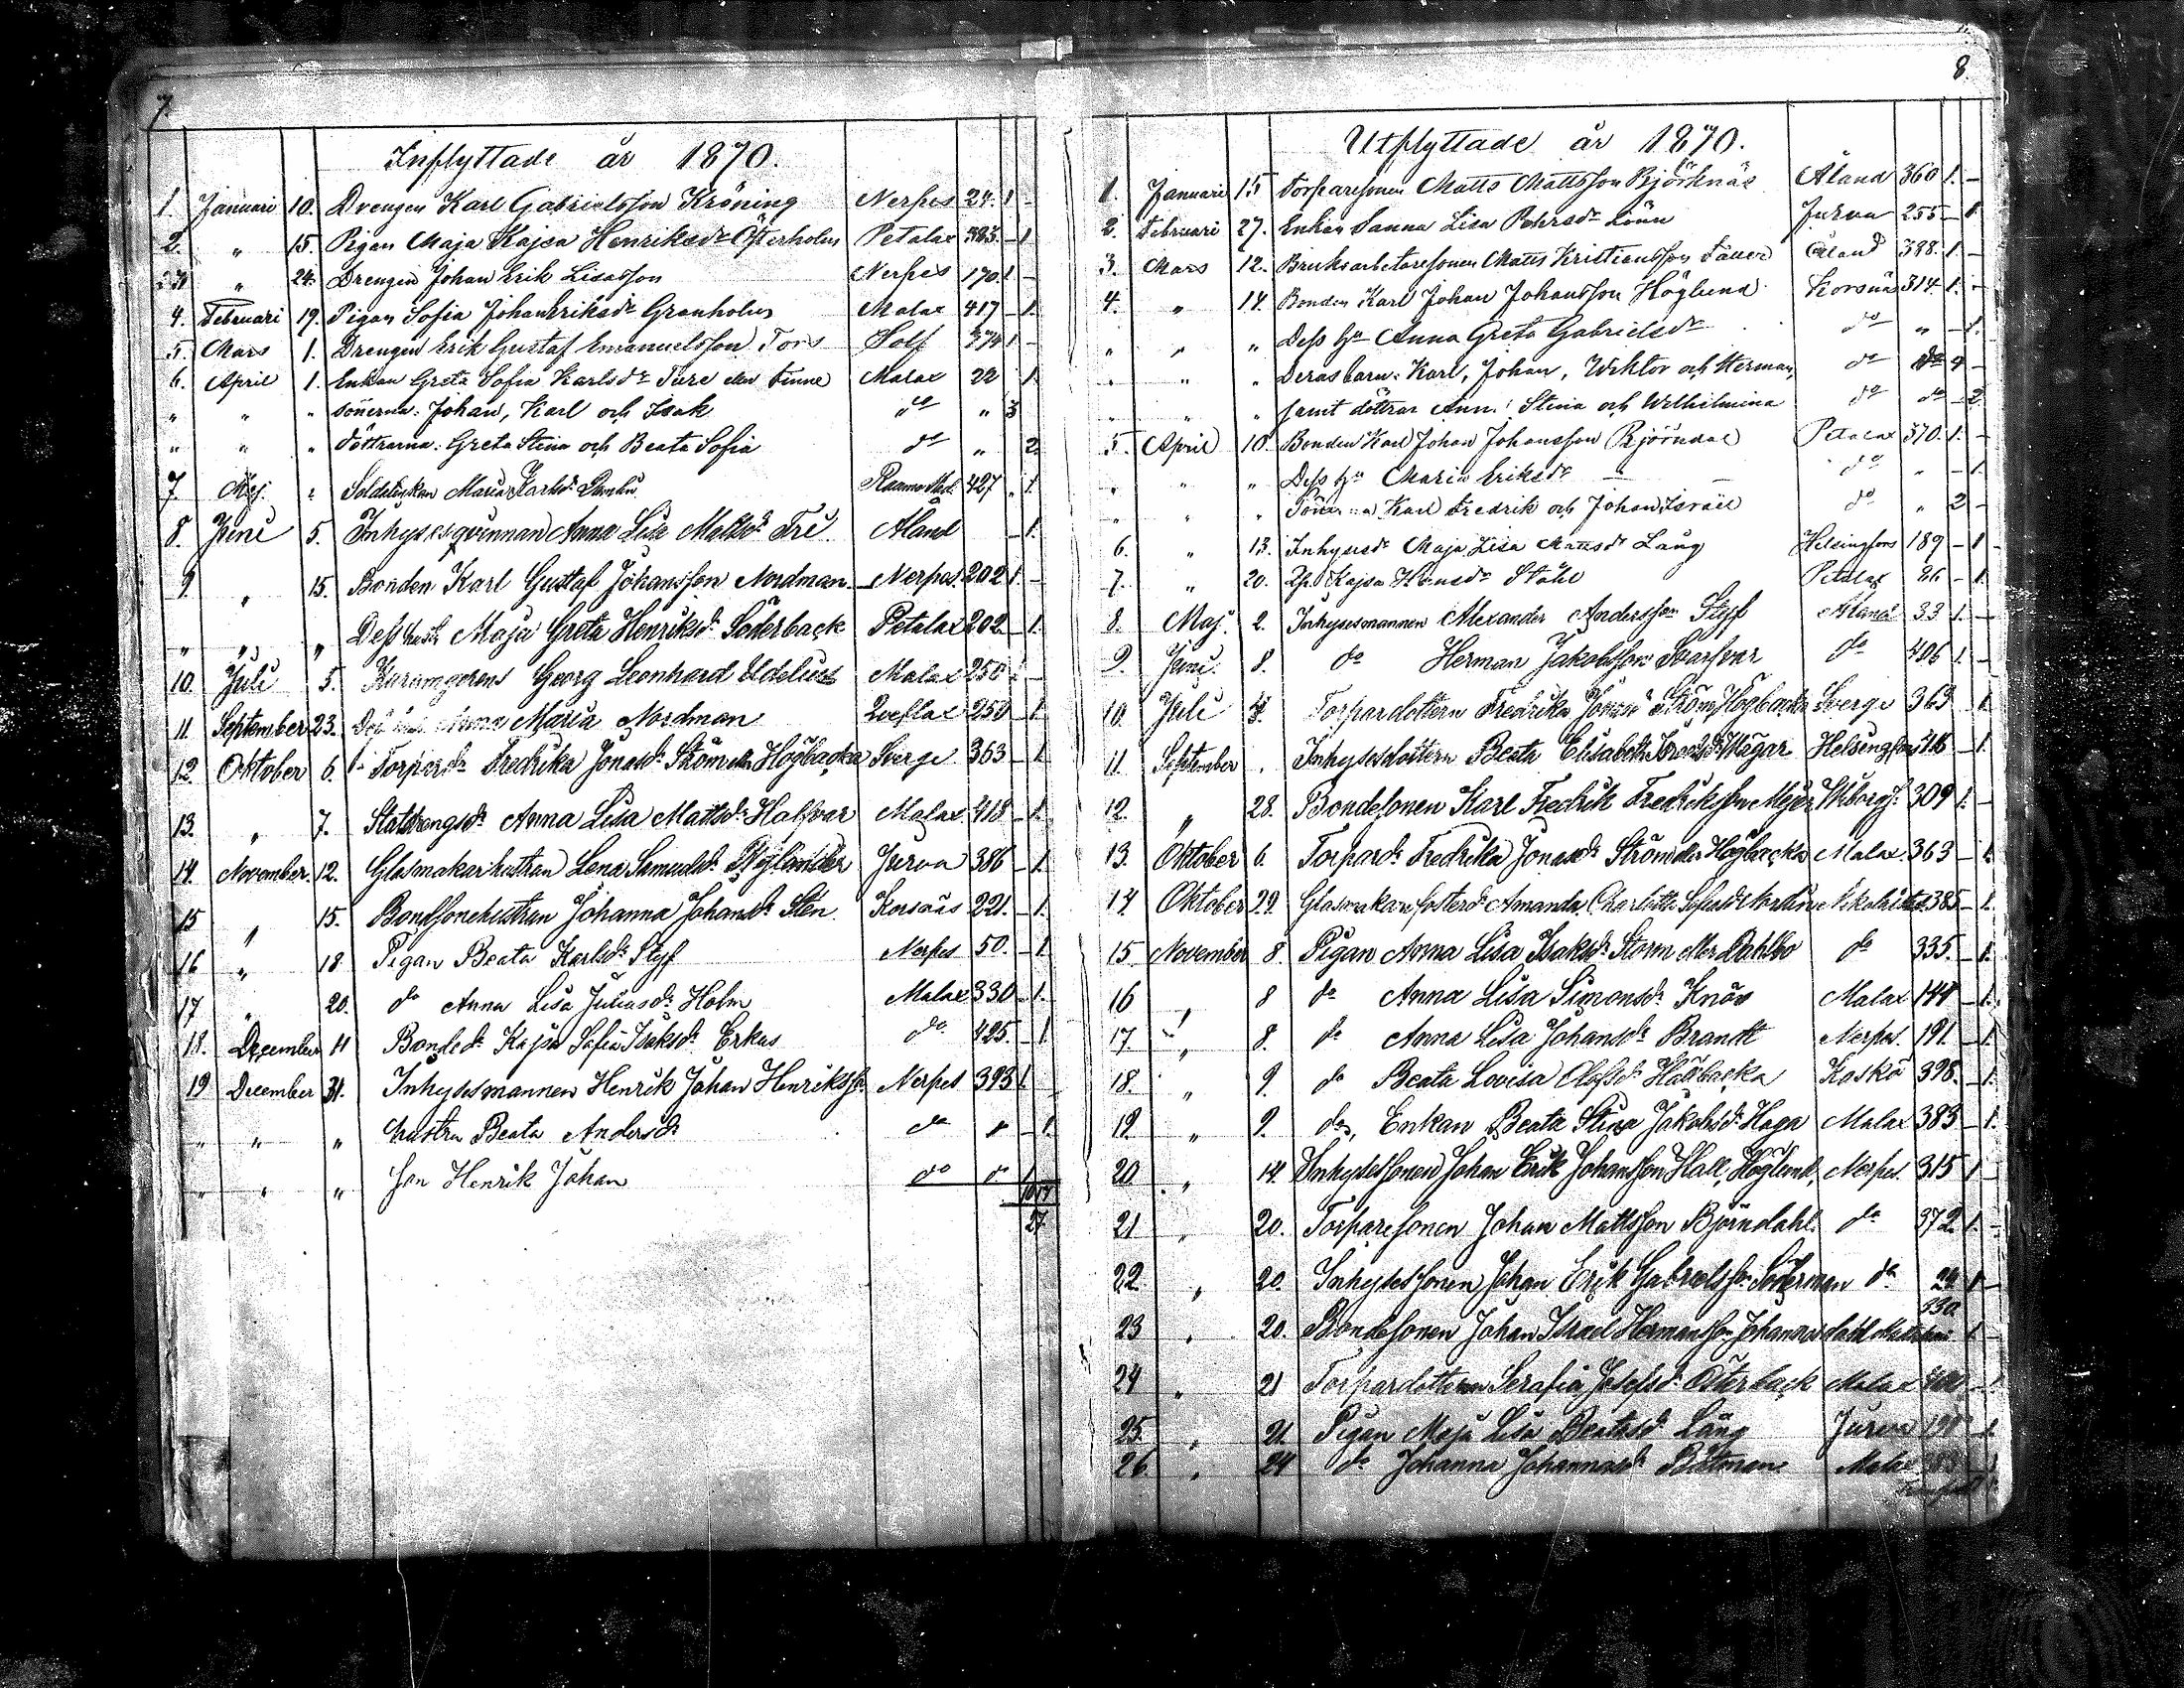 7.
Inflyttade år 1870.
1. Januari 10. Drengen Karl Gabrielsson Kröning Nerpes 24. 1 -
2. " 15. Pigan Maja Kajsa Henriksdr Österholm Petalax 383. - 1
" 24. Drengen Johan Erik Lisasson Nerpes 170. 1 -
4. Februari 19. Pigan Sofia Johan Eriksdr Granholm Malax 417 - 1.
5. Mars 1. Drengen Erik Gustaf Emanuelsson Fors Solf 374 1 -
6. April 1. Enkan Greta Sofia Karlsdr Ture eller Finne Malax 22 1
" " " sönerna: Johan, Karl och Isak do " 3
" " " döttrarna: Greta Stina och Beata Sofia do " 2.
7 Maj. Maria Karlsdr 427 - 1.
8. Juni 5. Inhysesqvinnan Anna Lisa Mattsdr Fri Åland - 1.
9. " 15. Bonden Karl Gustaf Johansson Nordman Nerpes 202 1. -
" " " Dess hustr Maja Greta Henriksdr Söderback Petalax 202 - 1.
10. Juli 5. Georg Leonhard Malax 250 -
11 September 23. Anna Maria Nordman 250 - 1.
12. Oktober 6. Torpardr Fredrika Jonasdr Ström eller Högbacka Sverge 363 - 1.
13. " 7. Anna Lisa Mattsdr Halfvar Malax 418 - 1.
14. November 12. Glasmakarhustrun Lena Samuelsdr Nylander Jurva 386 - 1.
15 " 15. Bondsonehustrun Johanna Johansdr Sten Korsnäs 221. - 1.
16 " 18 Pigan Beata Karlsdr Styf Nerpes 50. - 1
17 " 20. do Anna Lisa Juliasdr Holm Malax 330 - 1.
18. December 11 Bondedr Kajsa Sofia Isaksdr Erkus do 425. - 1
19 December 31. Inhysesmannen Henrik Johan Henrikss. Nerpes 393 1. -
" " " hustru Beata Andersdr do " - 1.
" " " son Henrik Johan do do
27
8.
Utflyttade år 1870.
1. Januari 15 Torparesonen Matts Mattsson Björknäs Åland 360 1. -
2. Februari 27. Enkan Sanna Lisa Pehrsdr Lönn Jurva 255 - 1.
3. Mars 12. Bruksarbetaresonen Matts Kristiansson Åland 388. 1. -
4. " 14. Bonden Karl Johan Johansson Höglund Korsnäs 314. 1. -
" " " Dess hu Anna Greta Gabrielsdr do " - 1.
" " " Deras barn: Karl, Johan, Wiktor och Herman, do do 4 -
" " " samt döttrar Anna Stina och Wilhelmina do do - 2.
5. April 10. Bonden Karl Johan Johansson Björndal Petalax 370. 1. -
" " " Dess hu Maria Eriksdr do " - 1.
" " " Sönerna Karl Fredrik och Johan Israël do " 2 -
6. " 13. Inhysesdr Maja Lisa Mattsdr Lång Helsingfors 189 - 1
7. " 20. Kajsa Hansdr Ståhl Petalax 26 - 1.
8. Maj. 2. Inhysesmannen Alexander Andersson Styf Åland 33 1. -
9. Juni 8. do Herman Jakobsson do 406 1. -
10. Juli Torpardottern Fredrika Jonasdr Ström, Högbacka Sverge 363 - 1.
11. September . Inhysesdottern Beata Elisabeth Hägar Helsingfors 416 - 1.
12. " 28. Bondesonen Karl Fredrik Fredriksson Wiborg 309 1. -
13. Oktober 6. Torpardr Fredrika Jonasdr Ström eller Högbacka Malax 363 - 1.
14 Oktober 29. Glasmakare fosterdr Amanda Charlotta 385 - 1.
15 November 8. Pigan Anna Lisa Isaksdr Storm eller Dahlbo do 335. - 1.
16 " 8 do Anna Lisa Simonsdr Knös Malax 144 - 1.
17. " 8. do Anna Lisa Johansdr Brandt Nerpes. 191 - 1.
18. " 9. do Beata Lovisa Olofsdr Kaskö 398. - 1.
19. " 9. do, Enkan Beata Stina Jakobsdr Haga Malax 383 - 1.
20 " 14. Inhysessonen Johan Erik Johansson Hall, Höglund, Nerpes. 315 1 -
21 " 20. Torparesonen Johan Mattsson Björndahl do 372 1. -
22. " 20. Inhysessonen Johan Erik Gabrielsson Söderman do 24 1 -
23 " 20. Bondesonen Johan Israel Hermansson 330 1 -
24 " 21 Torpardottern Serafia Josefsdr Österback Malax
25. " 21. Pigan Maja Lisa Beatasdr Lång Jurva 1.
26. " 24 do Johanna Johannasdr Malax